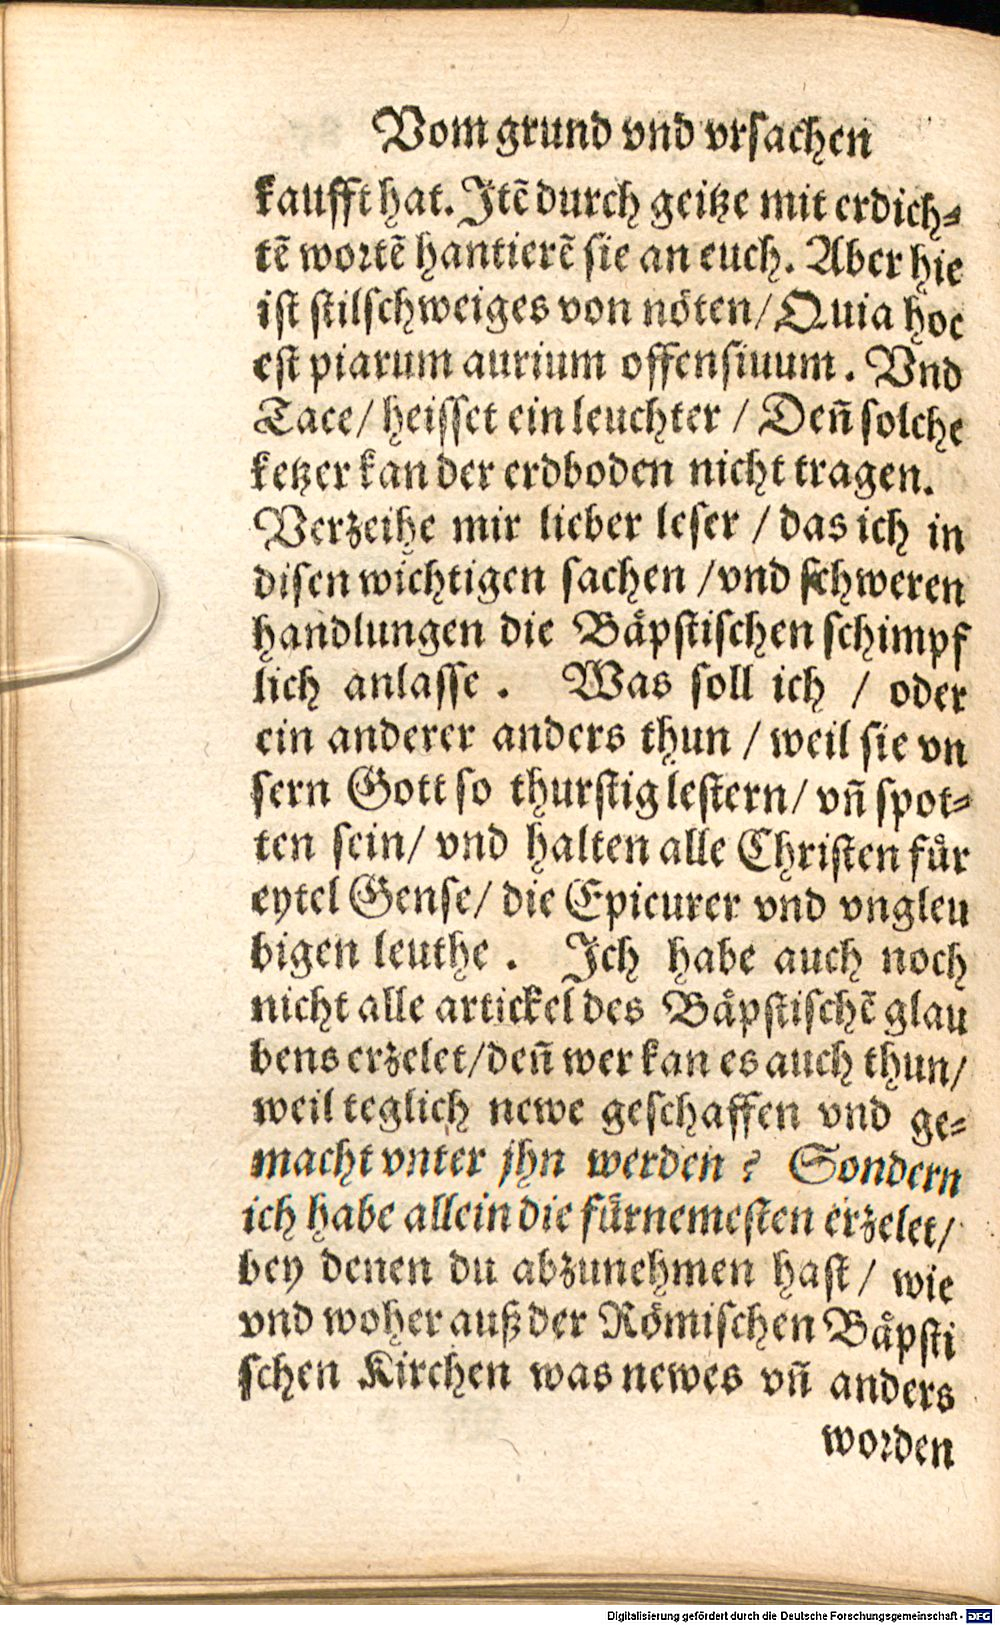 Vom grund vnd vrsachen
kaufft hat. Jtẽ durch geitze mit erdich⸗
tẽ wortẽ hantierẽ sie an euch. Aber hie
ist stilschweiges von nöten/ Quia hoc
est piarum aurium offensiuum. Vnd
Tace/ heisset ein leuchter / Deñ solche
ketzer kan der erdboden nicht tragen.
Verzeihe mir lieber leser / das ich in
disen wichtigen sachen / vnd schweren
handlungen die Bäpstischen schimpf
lich anlasse. Was soll ich / oder
ein anderer anders thun / weil sie vn
sern Gott so thurstig lestern/ vñ spot⸗
ten sein/ vnd halten alle Christen für
eytel Gense/ die Epicurer vnd vngleu
bigen leuthe. Ich habe auch noch
nicht alle artickel des Bäpstischẽ glau
bens erzelet/ deñ wer kan es auch thun/
weil teglich newe geschaffen vnd ge⸗
macht vnter jhn werden? Sondern
ich habe allein die fürnemesten erzelet/
bey denen du abzunehmen hast/ wie
vnd woher auß der Römischen Bäpsti
schen Kirchen was newes vñ anders
worden
Digitalisierung gefördert durch die Deutsche Forschungsgemeinschaft - DFG